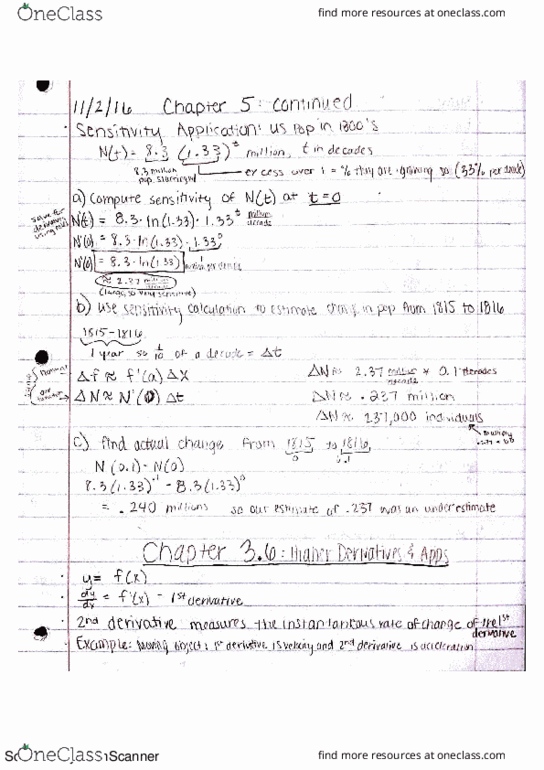 OneClass
find more resources at oneclass.com
11/2/16 Chapter 5: continued
· Sensitivity Application: US Pop in 1800's
N(t) = 8.3 (1.33)^t million, t in decades
8.3 million pop. starting
excess over 1 = % they are growing so (33% per decade)
a) Compute sensitivity of N(t) at t=0
N'(t) = 8.3 · ln(1.33) · 1.33^t million/decade
N'(0) = 8.3 · ln(1.33) · 1.33^0
N'(0) = 8.3 · ln(1.33)
≈ 2.37 million/decade
(large, so very sensitive)
b) use sensitivity calculation to estimate chang in pop from 1815 to 1816
1815-1816
1 year so 1/10 of a decade = Δt
Δf ≈ f'(a) Δx
ΔN ≈ N'(0) Δt
ΔN ≈ 2.37 million/decade * 0.1 decades
ΔN ≈ .237 million
ΔN ≈ 237,000 individuals
c) find actual change from 1815 to 1816
0 0.1
N(0.1) - N(0)
8.3(1.33)^.1 - 8.3(1.33)^0
= .240 millions so our estimate of .237 was an underestimate
Chapter 3.6: Higher Derivatives & Apps
· y = f(x)
· dy/dx = f'(x) - 1st derivative
· 2nd derivative measures the instantaneous rate of change of the 1st derivative
· Example: Moving object: 1st derivative is velocity and 2nd derivative is acceleration
OneClass
Scanner
find more resources at oneclass.com